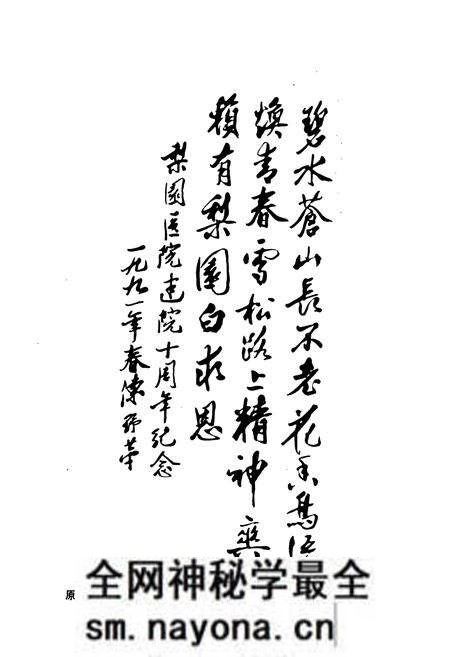 碧水蒼山長不老花香鳥语
焕青春雪松路上精神爽
賴有梨園白求恩
梨園医院建院十周年纪念
一九九一年春陈野苹
原
全网神秘学最全
sm.nayona.cn